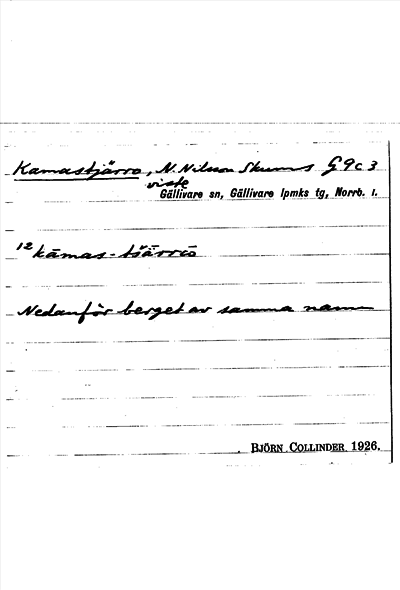 Kamastjärro, N. Nilsson Skums G9c3
viste
Gällivare sn, Gällivare lpmks tg, Norrb. l.
12 kāmas-tšārrō
Nedanför berget av samma namn
BJÖRN COLLINDER 1926.